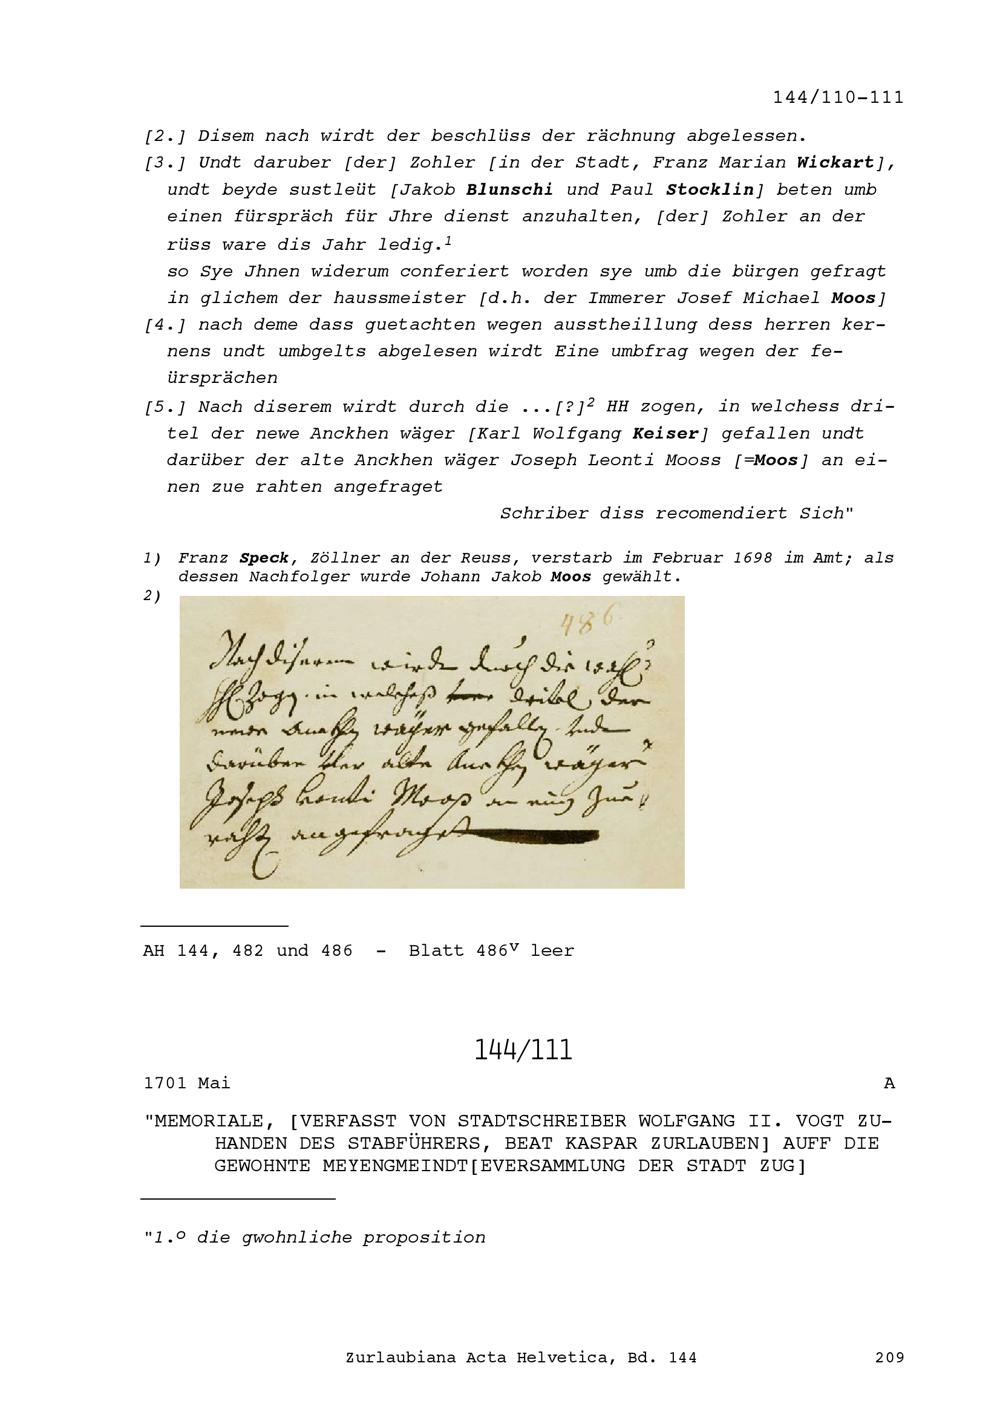 144/110-111
[2.] Disem nach wirdt der beschlüss der rächnung abgelessen.
[3.] Undt daruber [der] Zohler [in der Stadt, Franz Marian Wickart],
undt beyde sustleüt [Jakob Blunschi und Paul Stocklin] beten umb
einen fürspräch für Jhre dienst anzuhalten, [der] Zohler an der
rüss ware dis Jahr ledig.1
so Sye Jhnen widerum conferiert worden sye umb die bürgen gefragt
in glichem der haussmeister [d.h. der Immerer Josef Michael Moos]
[4.] nach deme dass guetachten wegen ausstheillung dess herren ker-
nens undt umbgelts abgelesen wirdt Eine umbfrag wegen der fe-
ürsprächen
[5.] Nach diserem wirdt durch die ...[?]2 HH zogen, in welchess dri-
tel der newe Anckhen wäger [Karl Wolfgang Keiser] gefallen undt
darüber der alte Anckhen wäger Joseph Leonti Mooss [=Moos] an ei-
nen zue rahten angefraget
Schriber diss recomendiert Sich"
1) Franz Speck, Zöllner an der Reuss, verstarb im Februar 1698 im Amt; als
dessen Nachfolger wurde Johann Jakob Moos gewählt.
2)
486
Nach diserem wirdt durch die
HH zogen in welchess dritel der
newe Anckhen wäger gefallen undt
darüber der alte Anckhen wäger
Joseph Leonti Mooss an einen zue
rahten angefraget
AH 144, 482 und 486 - Blatt 486v leer
144/111
1701 Mai A
"MEMORIALE, [VERFASST VON STADTSCHREIBER WOLFGANG II. VOGT ZU-
HANDEN DES STABFÜHRERS, BEAT KASPAR ZURLAUBEN] AUFF DIE
GEWOHNTE MEYENGMEINDT[EVERSAMMLUNG DER STADT ZUG]
"1.o die gwohnliche proposition
Zurlaubiana Acta Helvetica, Bd. 144 209